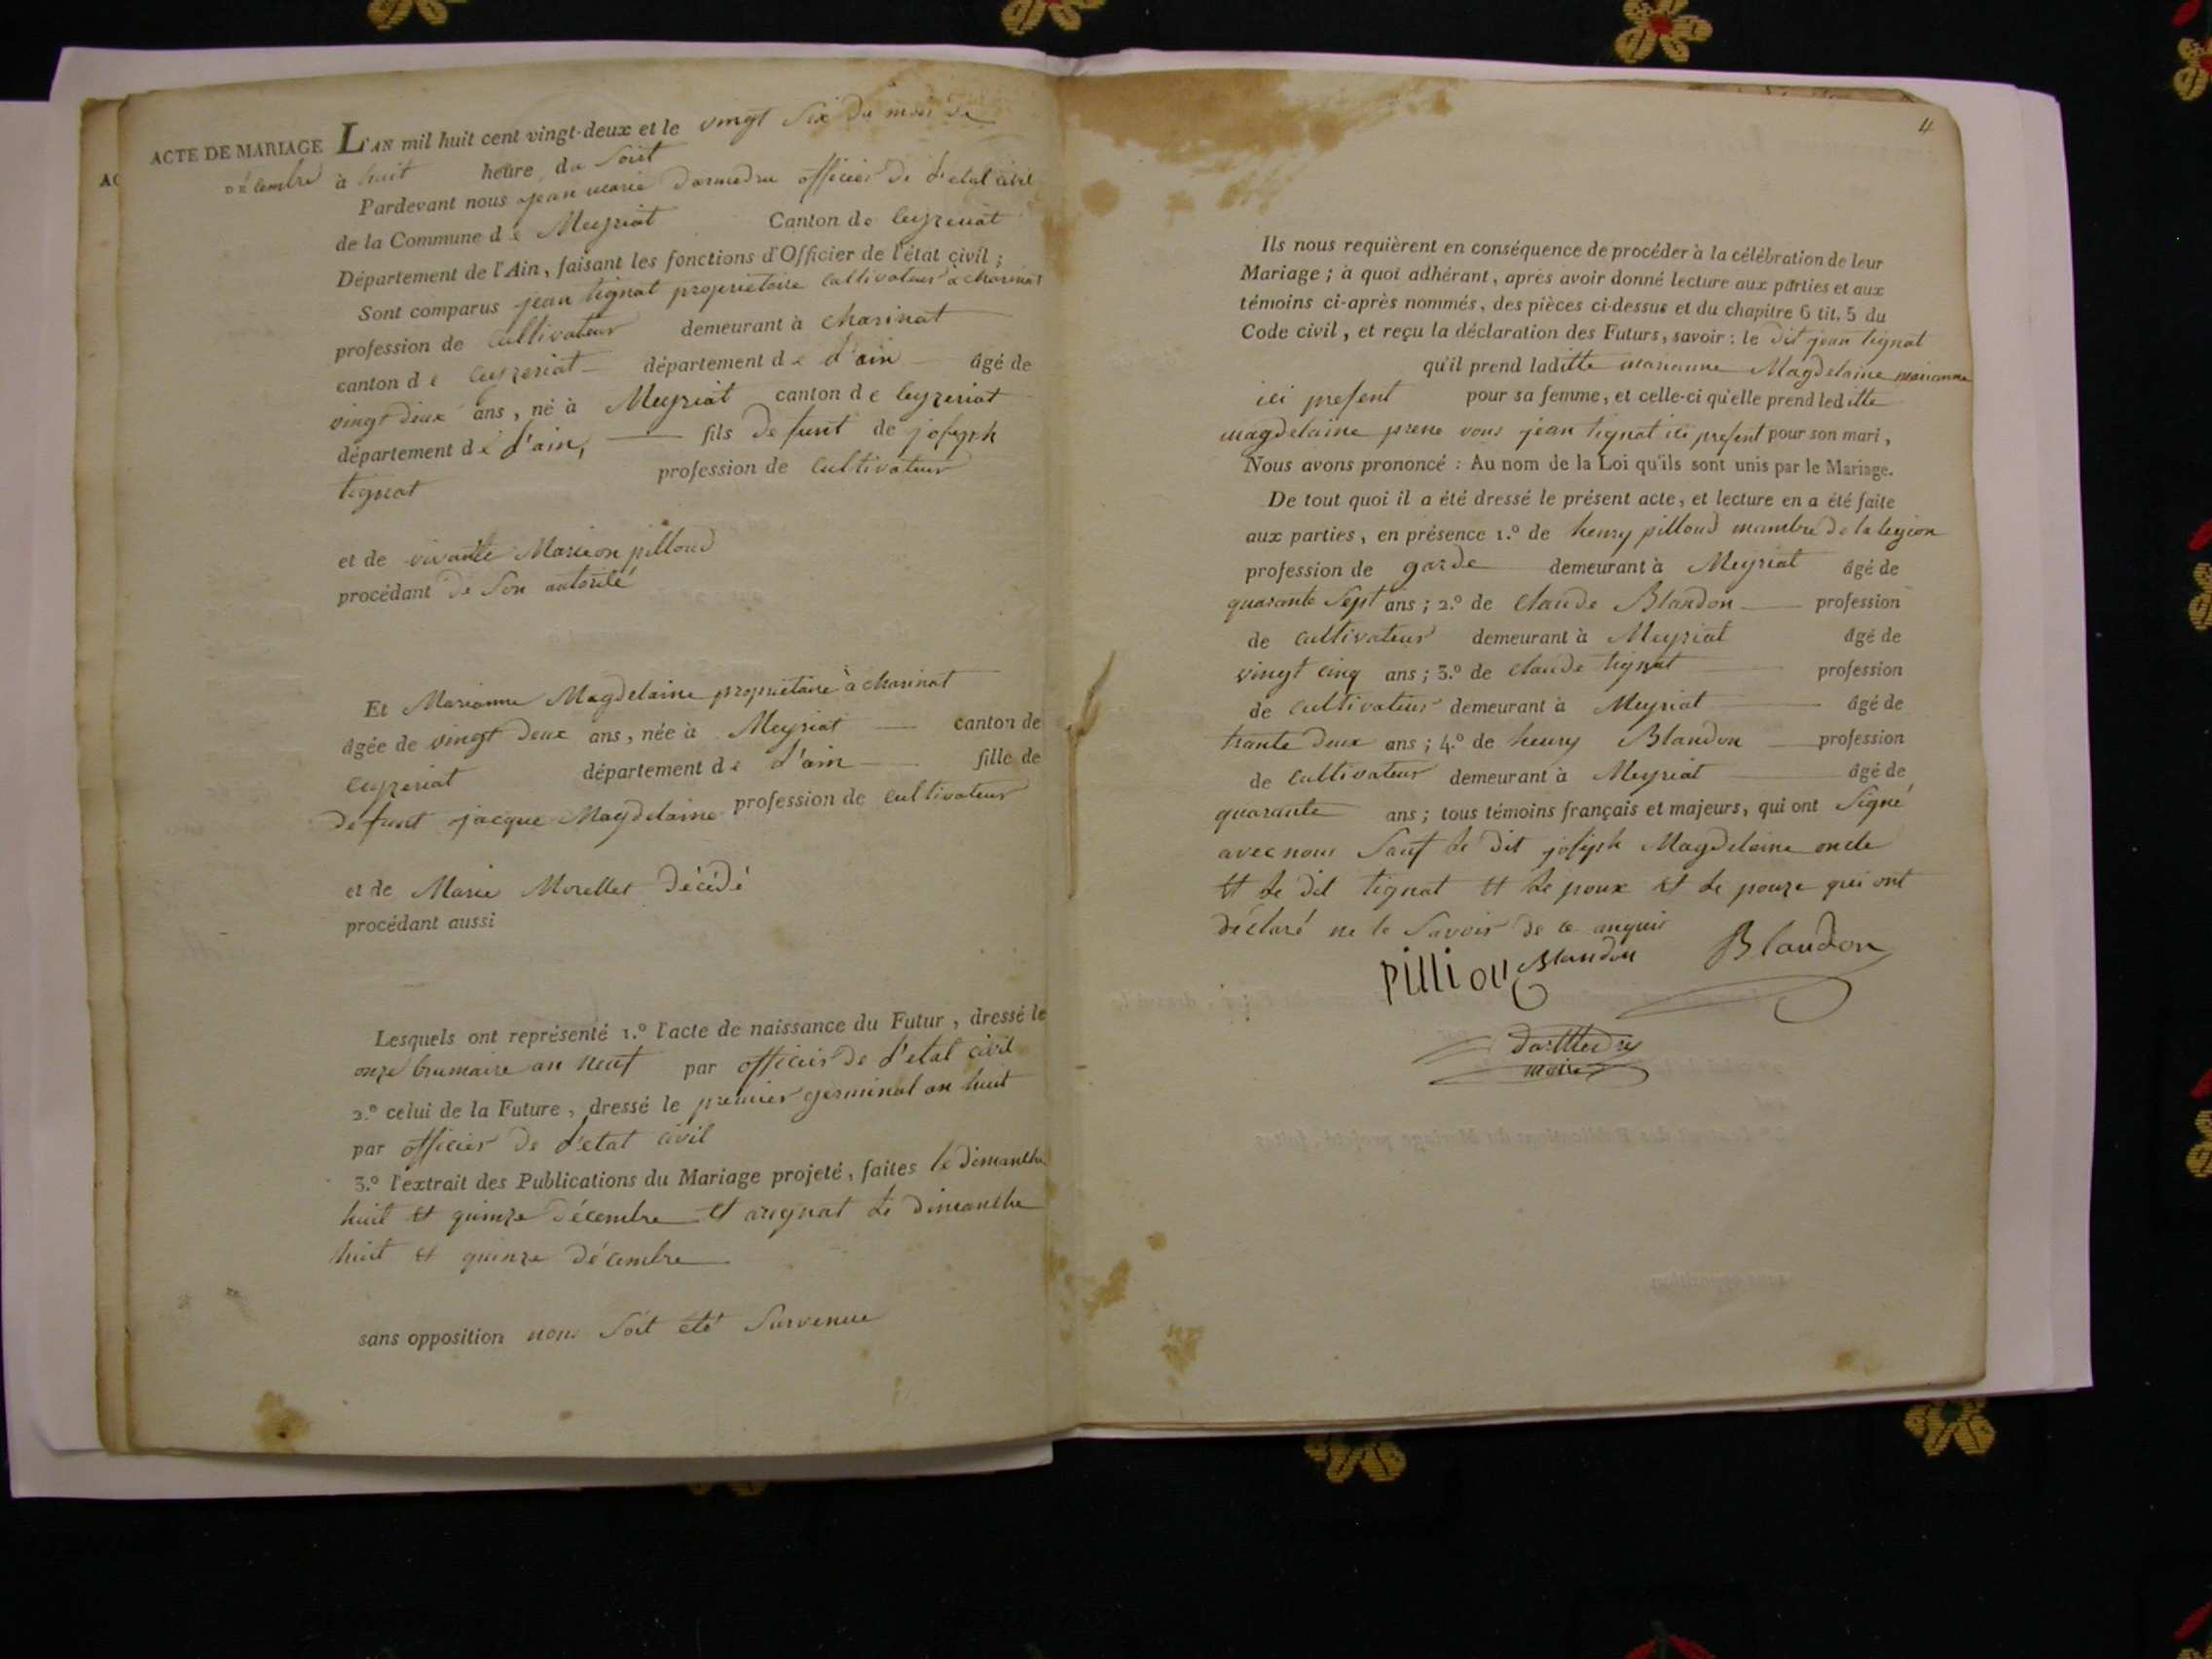 ACTE DE MARIAGE L'AN mil huit cent vingt-deux et le vingt six du mois de
décembre à huit heure du soirt
Pardevant nous jean marie darmedru officier de l'etat civil
de la Commune de Meyriat Canton de ceyzeriat
Département de l'Ain, faisant les fonctions d'Officier de l'état civil ;
Sont comparus jean tignat proprietaire cultivateur à charinat
profession de cultivateur demeurant à charinat
canton de ceyzeriat département de d'ain âgé de
vingt deux ans, né à Meyriat canton de ceyzeriat
département de d'ain, fils defunt de joseph
tignat profession de cultivateur
et de vivante Marion pilloud
procédant de son autorité
Et Marianne Magdelaine proprietaire à charinat
âgée de vingt deux ans, née à Meyriat canton de
ceyzeriat département de d'ain fille de
defunt jacque Magdelaine profession de cultivateur
et de Marie Morellet décédé
procédant aussi
Lesquels ont représenté 1.º l'acte de naissance du Futur, dressé le
onze brumaire an neuf par officier de l'etat civil
2.º celui de la Future, dressé le premier germinal an huit
par officier de l'etat civil
3.º l'extrait des Publications du Mariage projeté, faites le dimanche
huit et quinze décembre et a rignat le dimanche
huit et quinze décembre
sans opposition nous soit été survenue
4
Ils nous requièrent en conséquence de procéder à la célébration de leur
Mariage ; à quoi adhérant, après avoir donné lecture aux parties et aux
témoins ci-après nommés, des pièces ci-dessus et du chapitre 6 tit. 5 du
Code civil, et reçu la déclaration des Futurs, savoir : le dit jean tignat
qu'il prend laditte marianne Magdelaine marianne
ici present pour sa femme, et celle-ci qu'elle prend leditte
magdelaine prene vous jean tignat ici present pour son mari,
Nous avons prononcé : Au nom de la Loi qu'ils sont unis par le Mariage.
De tout quoi il a été dressé le présent acte, et lecture en a été faite
aux parties, en présence 1.º de henry pilloud mambre de la legion
profession de garde demeurant à Meyriat âgé de
quarante sept ans ; 2.º de claude Blandon profession
de cultivateur demeurant à Meyriat âgé de
vingt cinq ans ; 3.º de claude tignat profession
de cultivateur demeurant à Meyriat âgé de
trante deux ans ; 4.º de henry Blandon profession
de cultivateur demeurant à Meyriat âgé de
quarante ans ; tous témoins français et majeurs, qui ont signé
avec nous sauf le dit joseph Magdelaine oncle
et le dit tignat et le poux et le pouze qui ont
déclaré ne le savoir de ce anquis
Pilliou Blandon Blandon
darmedru
maire